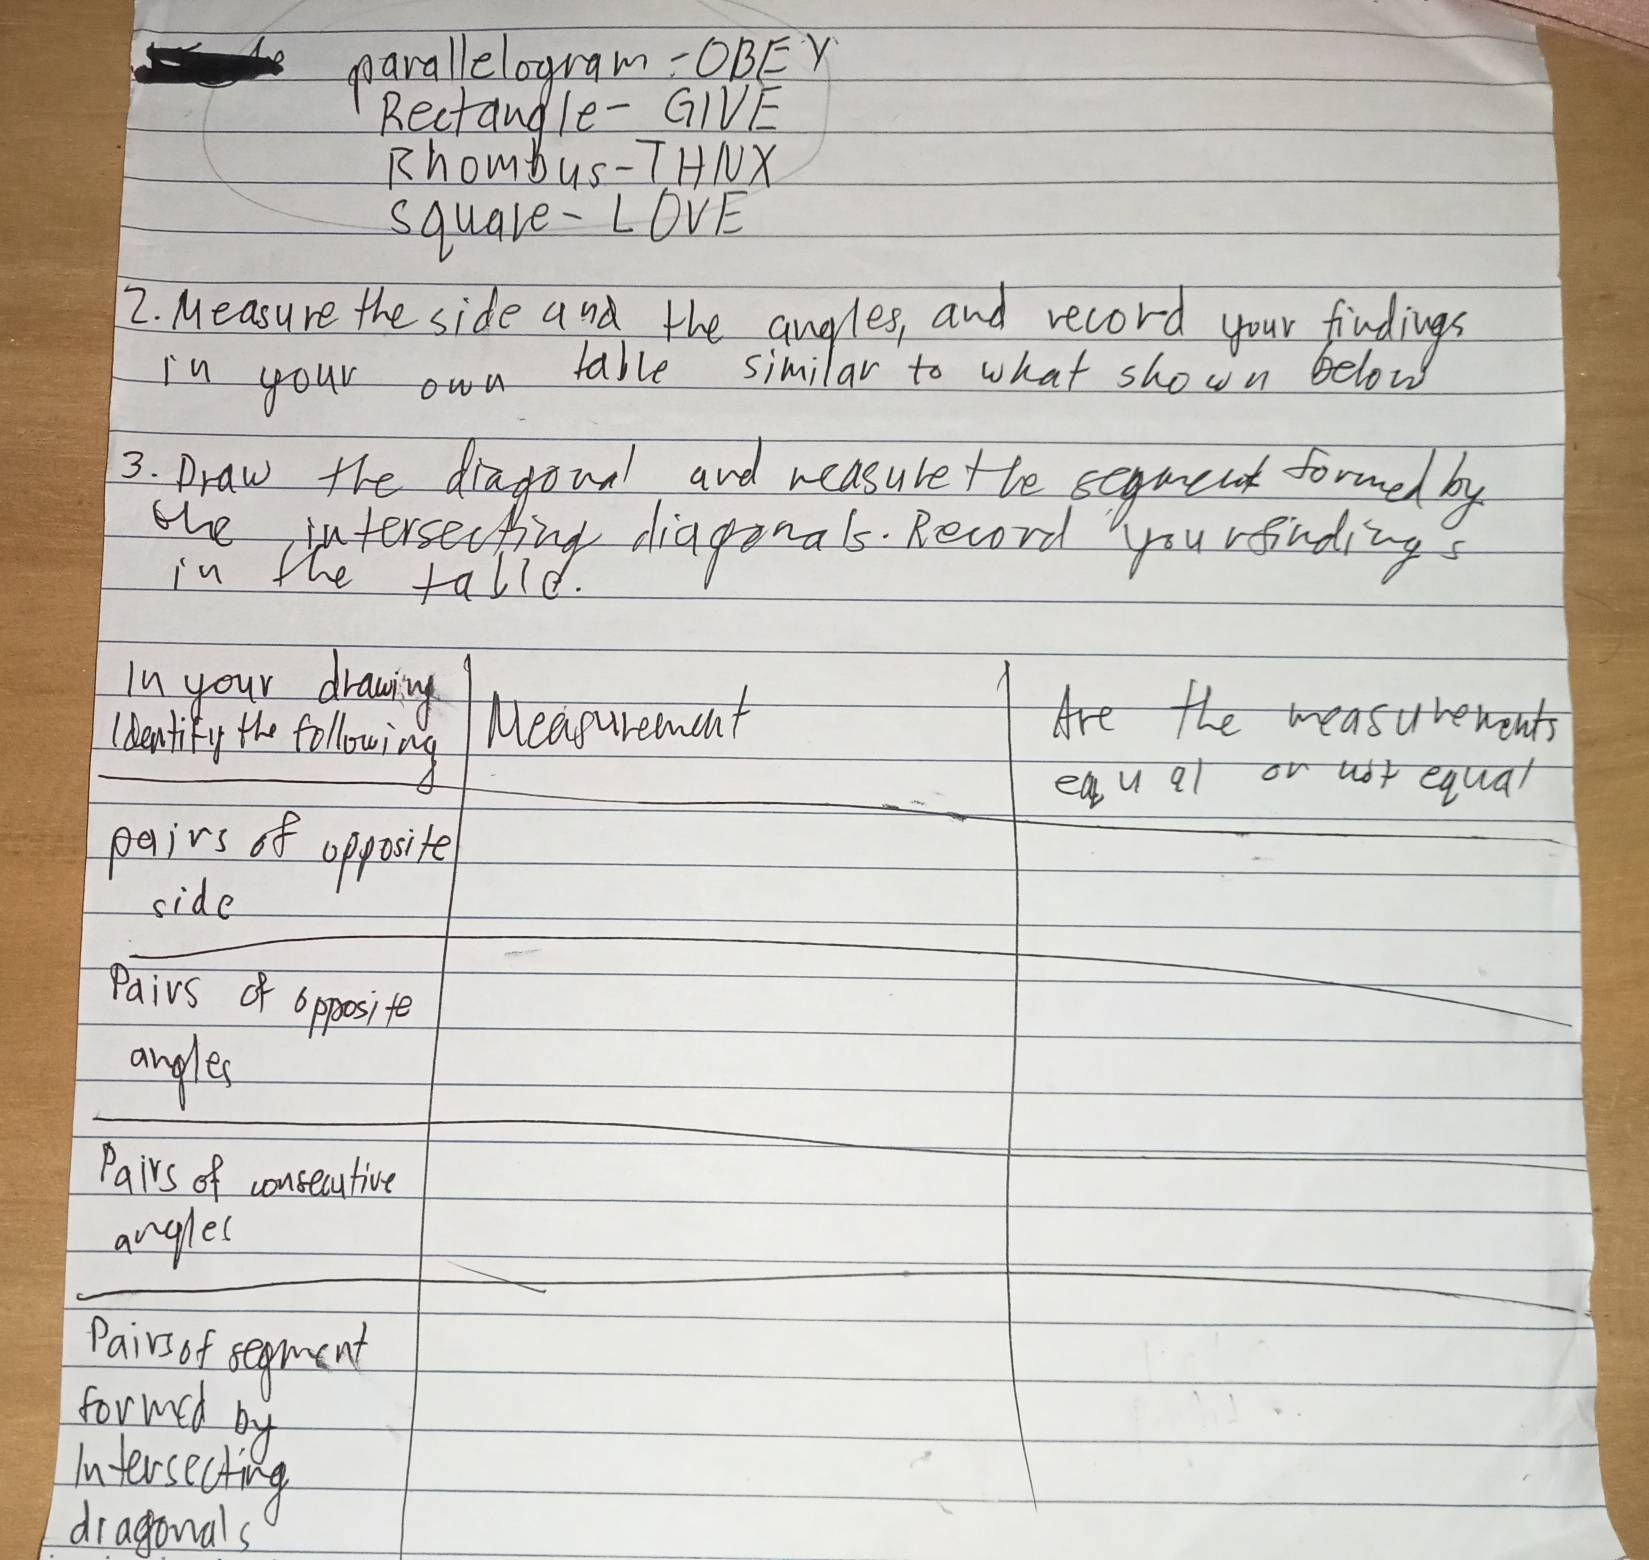 parallelogram - OBEY
Rectangle - GIVE
Rhombus - THNX
square - LOVE
2. Measure the side and the angles, and record your findings
in your own table similar to what shown below
3. Draw the diagonal and measure the segment formed by
the intersecting diagonals. Record your findings
in the table.
In your drawing
Identify the following
Measurement
Are the measurements
equal or not equal
pairs of opposite
side
Pairs of opposite
angles
Pairs of consecutive
angles
Pairs of segment
formed by
Intersecting
diagonals